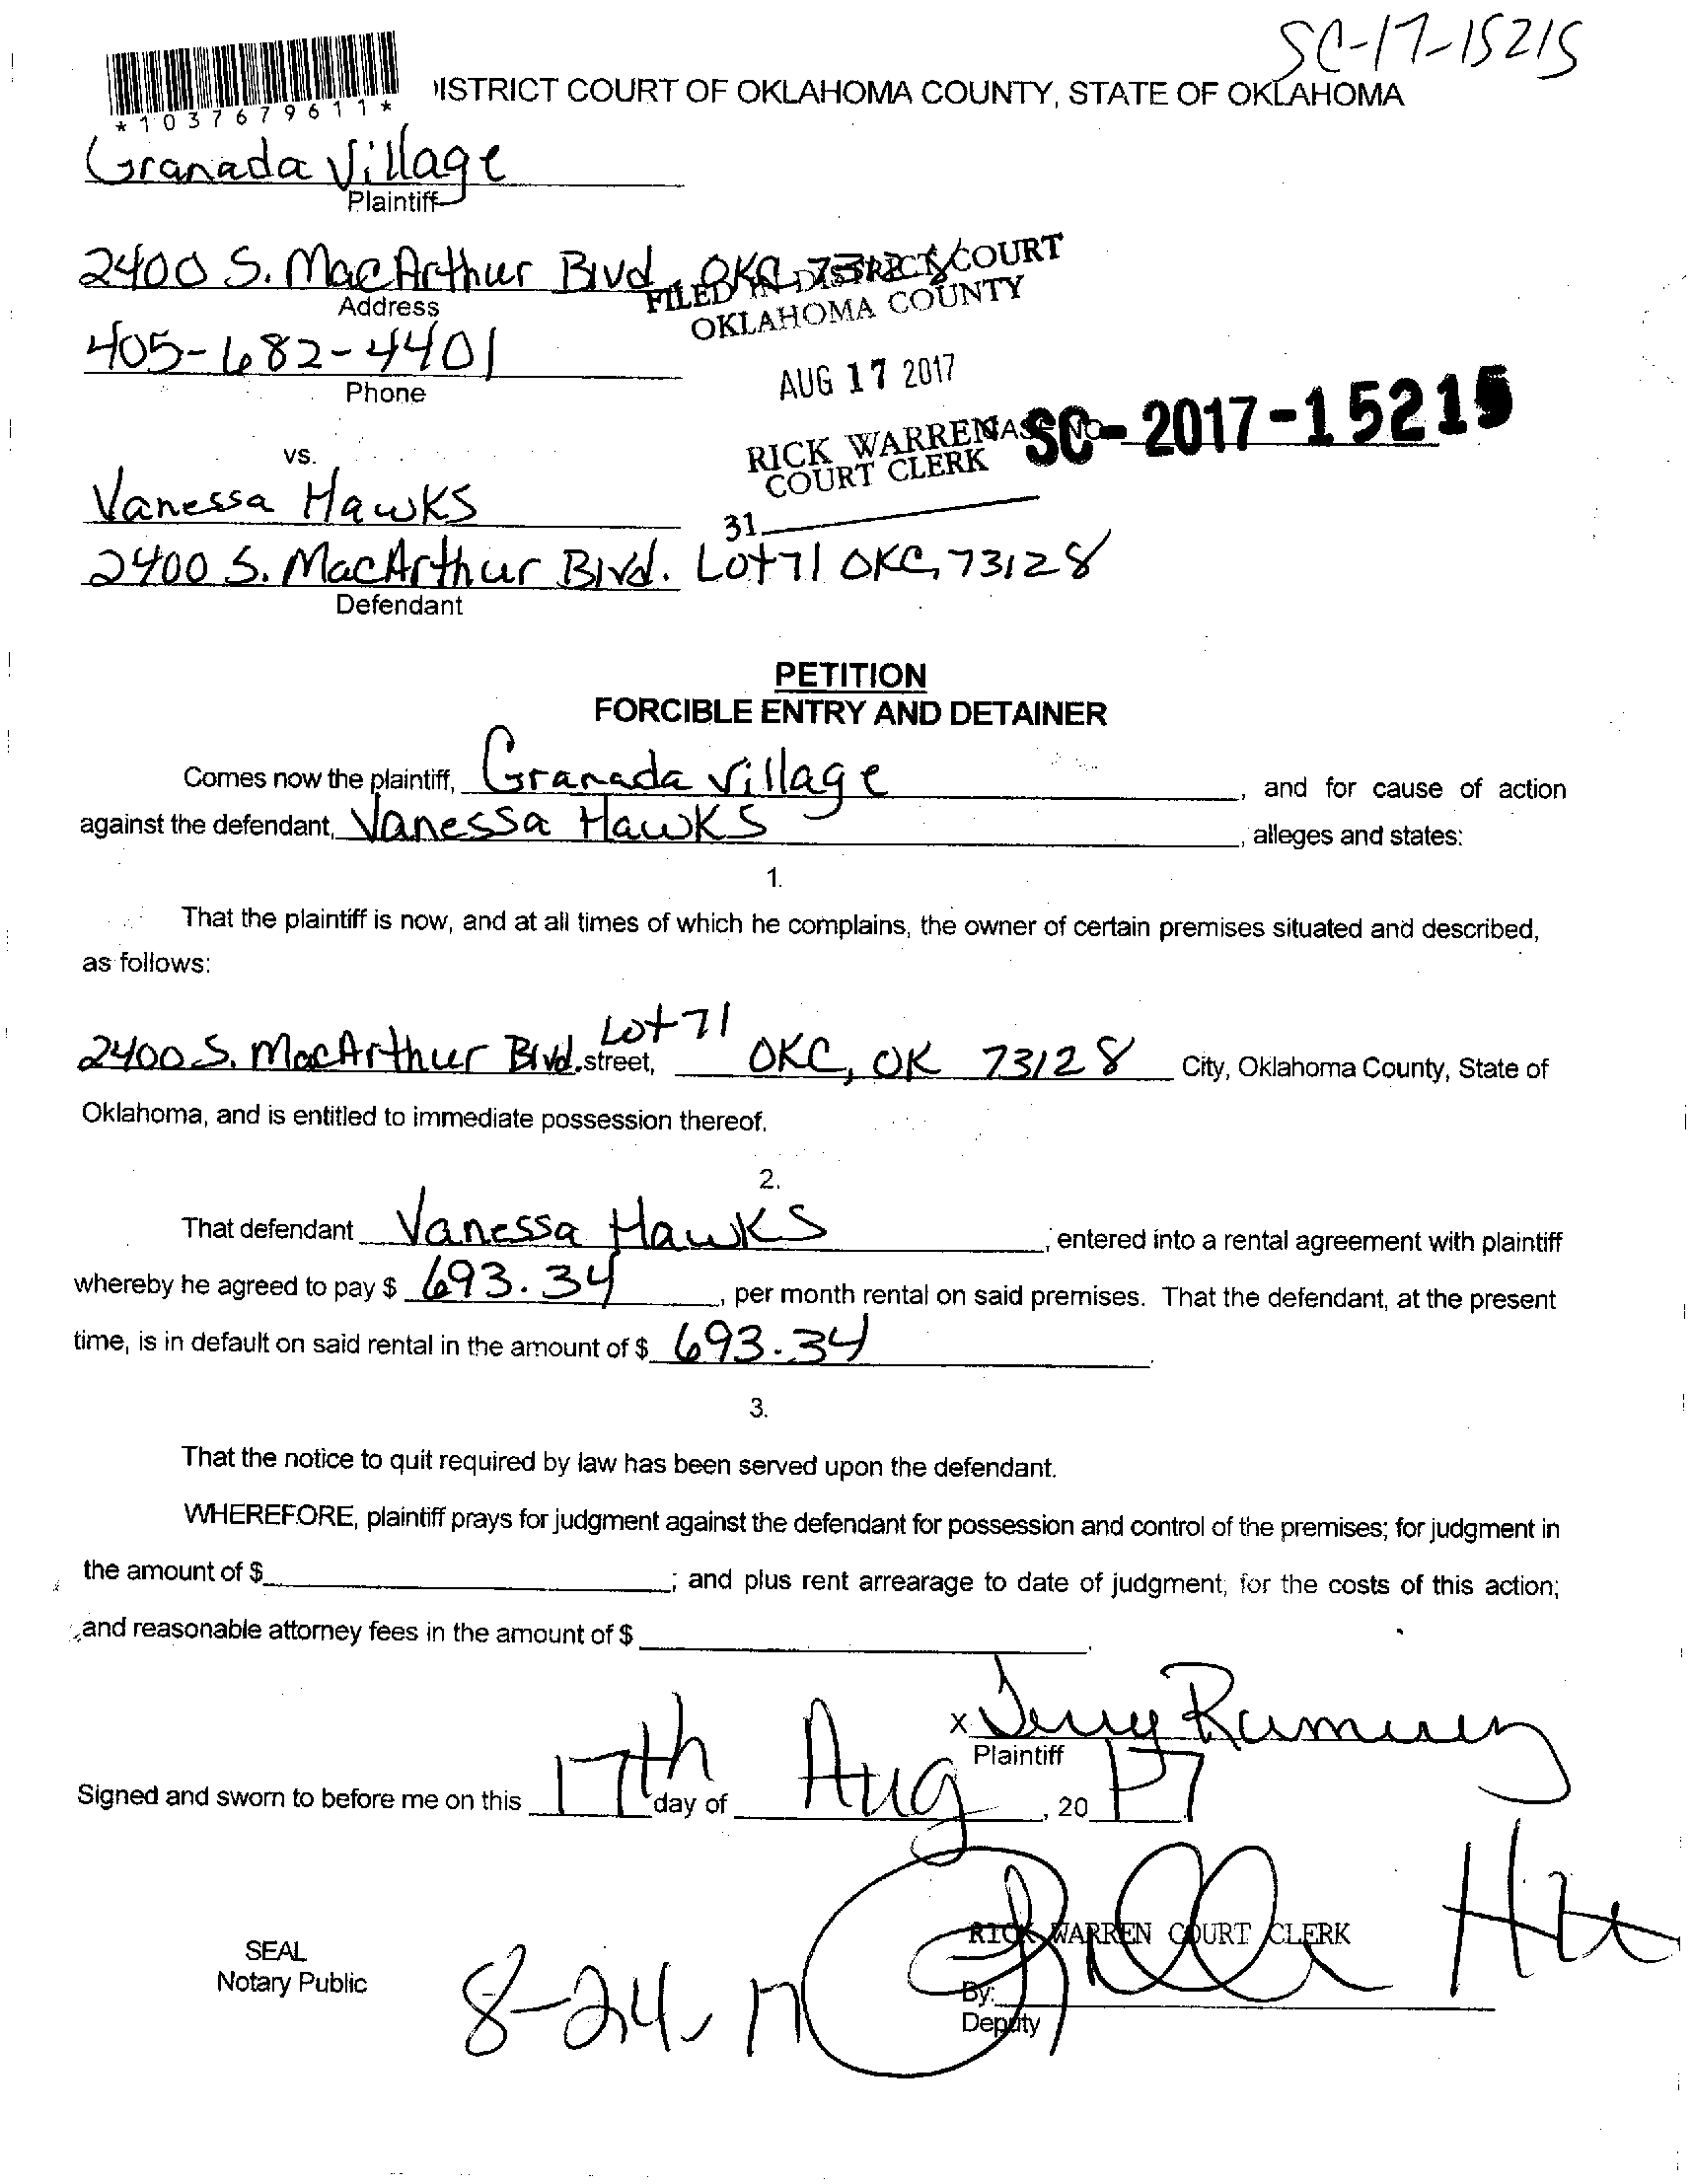 SC-17-15215
*1037679611*
ISTRICT COURT OF OKLAHOMA COUNTY, STATE OF OKLAHOMA
Granada Village
Plaintiff
2400 S. MacArthur Blvd. OKC 73128
Address
FILED IN DISTRICT COURT
OKLAHOMA COUNTY
405-682-4401
Phone
AUG 17 2017
RICK WARREN
COURT CLERK
SC-2017-15215
vs.
Vanessa Hawks
31
2400 S. MacArthur Blvd. Lot 71 OKC, 73128
Defendant
PETITION
FORCIBLE ENTRY AND DETAINER
Comes now the plaintiff, Granada Village, and for cause of action
against the defendant, Vanessa Hawks, alleges and states:
1.
That the plaintiff is now, and at all times of which he complains, the owner of certain premises situated and described,
as follows:
2400 S. MacArthur Blvd. Lot 71 street, OKC, OK 73128 City, Oklahoma County, State of
Oklahoma, and is entitled to immediate possession thereof.
2.
That defendant Vanessa Hawks, entered into a rental agreement with plaintiff
whereby he agreed to pay $ 693.34, per month rental on said premises. That the defendant, at the present
time, is in default on said rental in the amount of $ 693.34.
3.
That the notice to quit required by law has been served upon the defendant.
WHEREFORE, plaintiff prays for judgment against the defendant for possession and control of the premises; for judgment in
the amount of $ ; and plus rent arrearage to date of judgment; for the costs of this action;
and reasonable attorney fees in the amount of $ .
x
Plaintiff
Signed and sworn to before me on this 17th day of Aug, 20 17
RICK WARREN COURT CLERK
SEAL
Notary Public
8-24-17
By:
Deputy